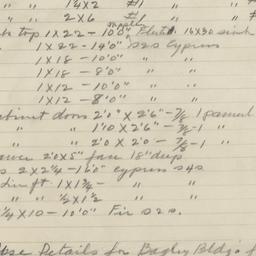 " " 1¼x2 #1 " "
2x6 #1 " "
top 1x22 - 10'0" maple Flute 16x30 sink
1x22 - 14'0" S2S Cypress
1x18 - 10'0" " "
1x18 - 8'0" " "
1x12 - 10'0" " "
1x12 - 8'0" " "
cabinet doors 2'0" x 2'6" - 7/8 1 panel
" " 1'10 x 2'6" - 7/8 - 1 "
" " 2'0 x 2'0 - 7/8 - 1 "
2'0x5" face 18" deep
2x2¼ - 16'0" cypress S4S
ft 1x1¾ - " "
" " ½x1½ " "
¼x10 - 10'0" Fir S2S.
Details for Bagley Bldg's